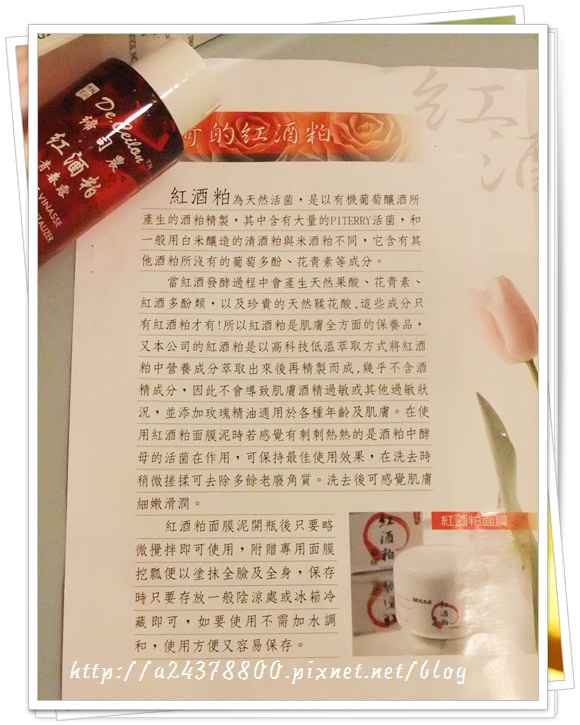 De.Seilon™
締司農
紅酒粕
青春露
VINASSE
哥的紅酒粕
紅酒
紅酒粕為天然活菌，是以有機葡萄釀酒所
產生的酒粕精製，其中含有大量的PITERRY活菌，和
一般用白米釀造的清酒粕與米酒粕不同，它含有其
他酒粕所沒有的葡萄多酚、花青素等成分。
當紅酒發酵過程中會產生天然果酸、花青素、
紅酒多酚類，以及珍貴的天然鞣花酸,這些成分只
有紅酒粕才有!所以紅酒粕是肌膚全方面的保養品，
又本公司的紅酒粕是以高科技低溫萃取方式將紅酒
粕中營養成分萃取出來後再精製而成,幾乎不含酒
精成分，因此不會導致肌膚酒精過敏或其他過敏狀
況，並添加玫瑰精油適用於各種年齡及肌膚。在使
用紅酒粕面膜泥時若感覺有刺刺熱熱的是酒粕中酵
母的活菌在作用，可保持最佳使用效果，在洗去時
稍微搓揉可去除多餘老廢角質。洗去後可感覺肌膚
細嫩滑潤。
紅酒粕面膜泥開瓶後只要略
微攪拌即可使用，附贈專用面膜
挖瓢便以塗抹全臉及全身，保存
時只要存放一般陰涼處或冰箱冷
藏即可，如要使用不需加水調
和，使用方便又容易保存。
紅酒粕面膜
紅酒粕
紅酒粕
http://a24378800.pixnet.net/blog